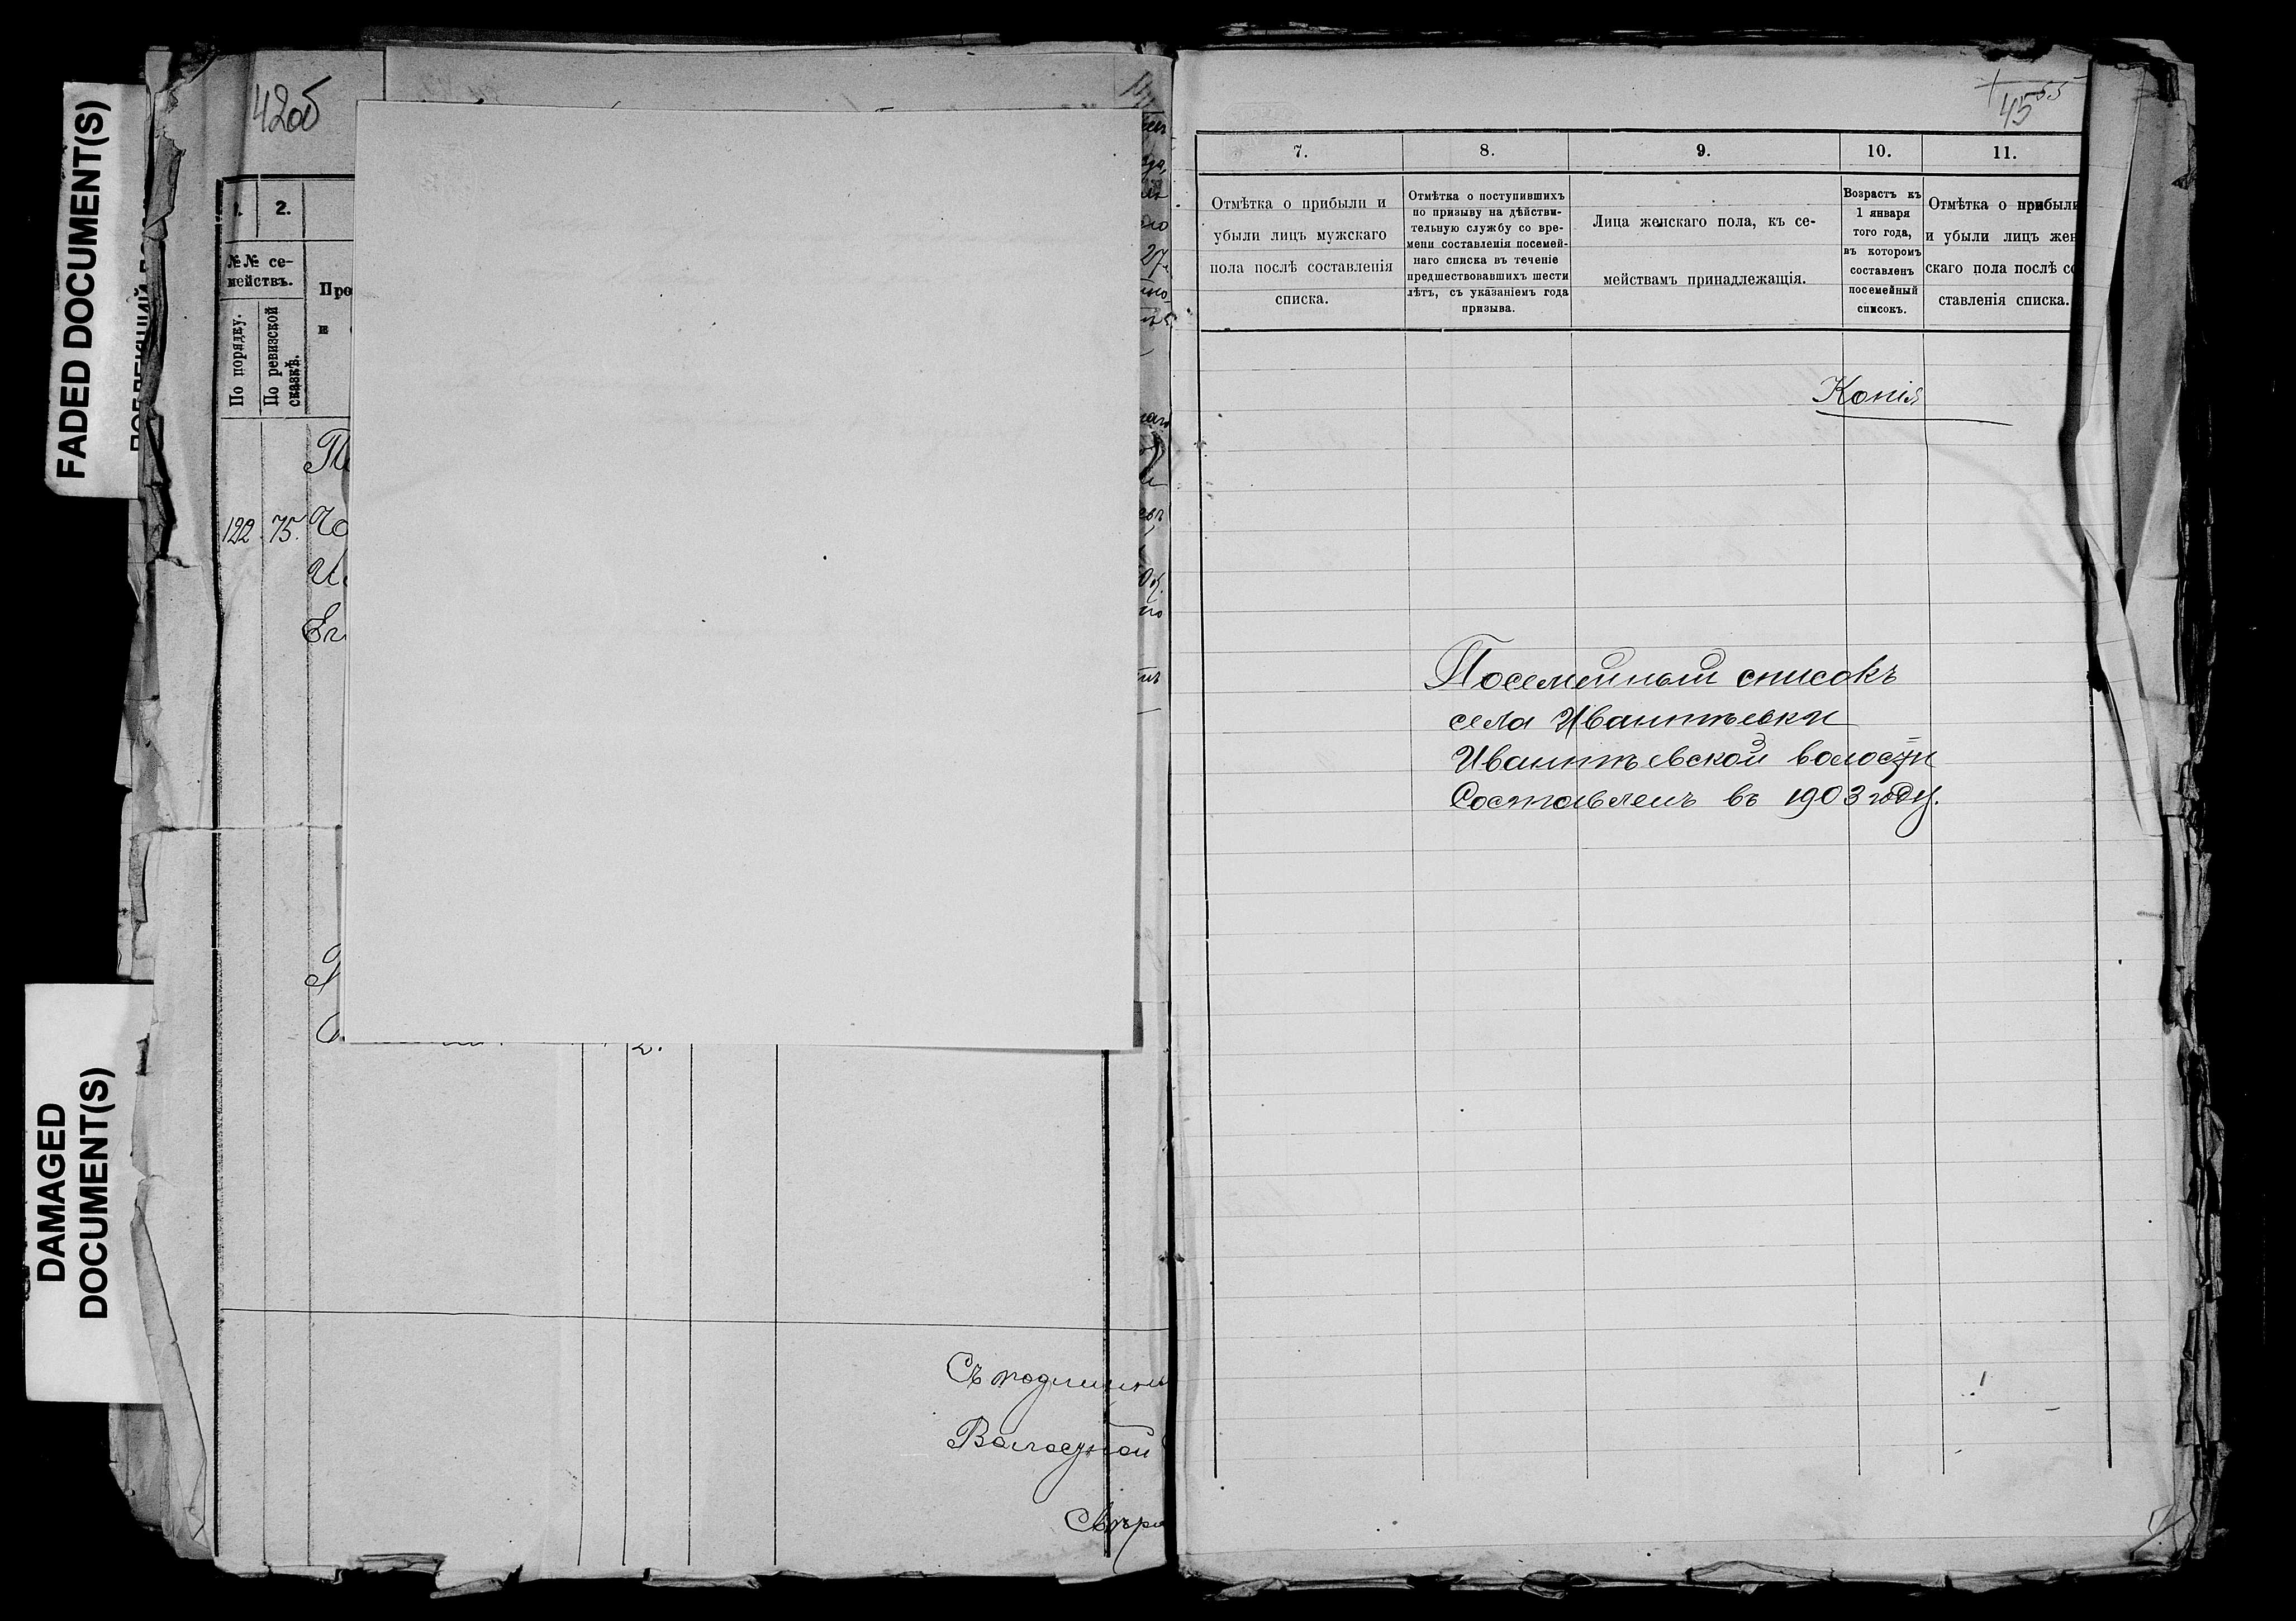 FADED DOCUMENT(S)
DAMAGED
DOCUMENT(S)
42об
2.
№№ се-
мействъ.
По порядку.
По ревизской
сказкѣ.
Про
и
122. 75.
2.
Съ подлинны
Волостной
Свѣря
45 55
7. 8. 9. 10. 11.
Отмѣтка о прибыли и
убыли лицъ мужскаго
пола послѣ составленія
списка.
Отмѣтка о поступившихъ
по призыву на дѣйстви-
тельную службу со вре-
мени составленія посемей-
наго списка въ теченіе
предшествовавшихъ шести
лѣтъ, съ указаніемъ года
призыва.
Лица женскаго пола, къ се-
мействамъ принадлежащія.
Возрастъ къ
1 января
того года,
въ которомъ
составленъ
посемейный
списокъ.
Отмѣтка о прибыли
и убыли лицъ жен
скаго пола послѣ со
ставленія списка.
Копія
Посемейный списокъ
села Ивантѣевки
Ивантѣевской волости
Составленъ въ 1903 году.